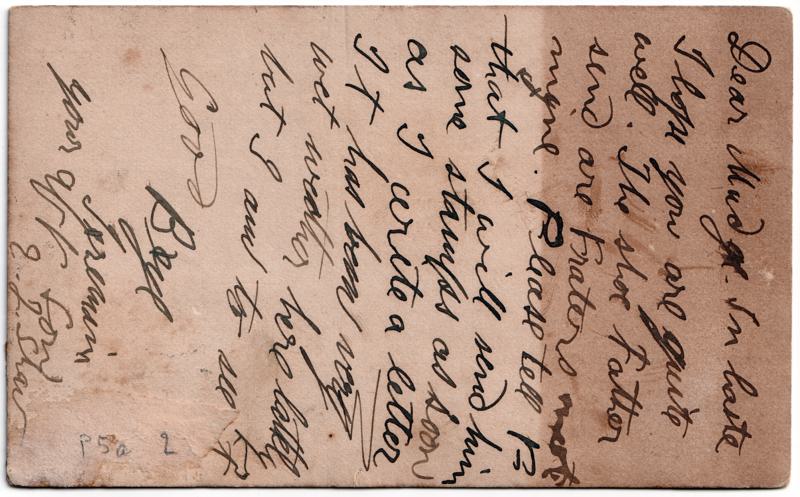 Dear Madge. In haste
I hope you are quite
well. The shoe Father
send are Fraters not
mine. Please tell B
that I will send him
some stamps as soon
as I write a letter
It has been very
wet weather here lately
but I am to see
Good
Bye
I remain
your
P5a 2